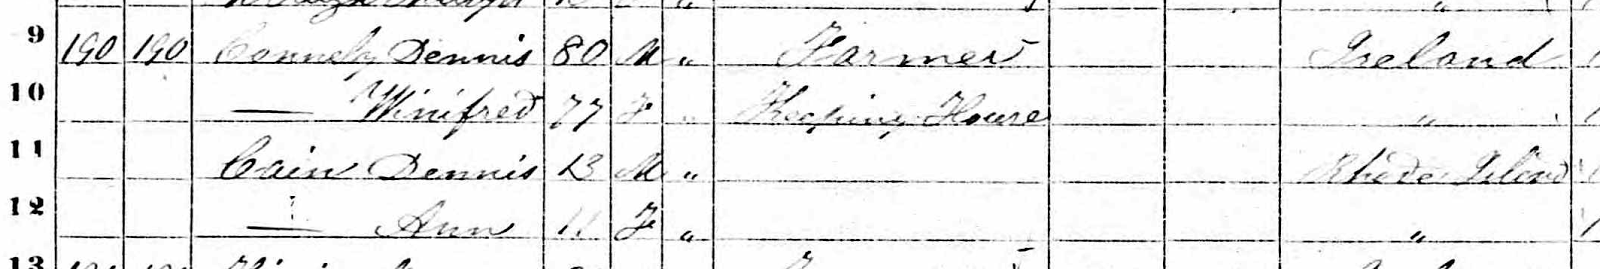 9 190 190 Connely Dennis 80 M " Farmer Ireland
10 — Winifred 77 F " Keeping House "
11 Cain Dennis 13 M " Rhode Island
12 — Ann 11 F " "
13